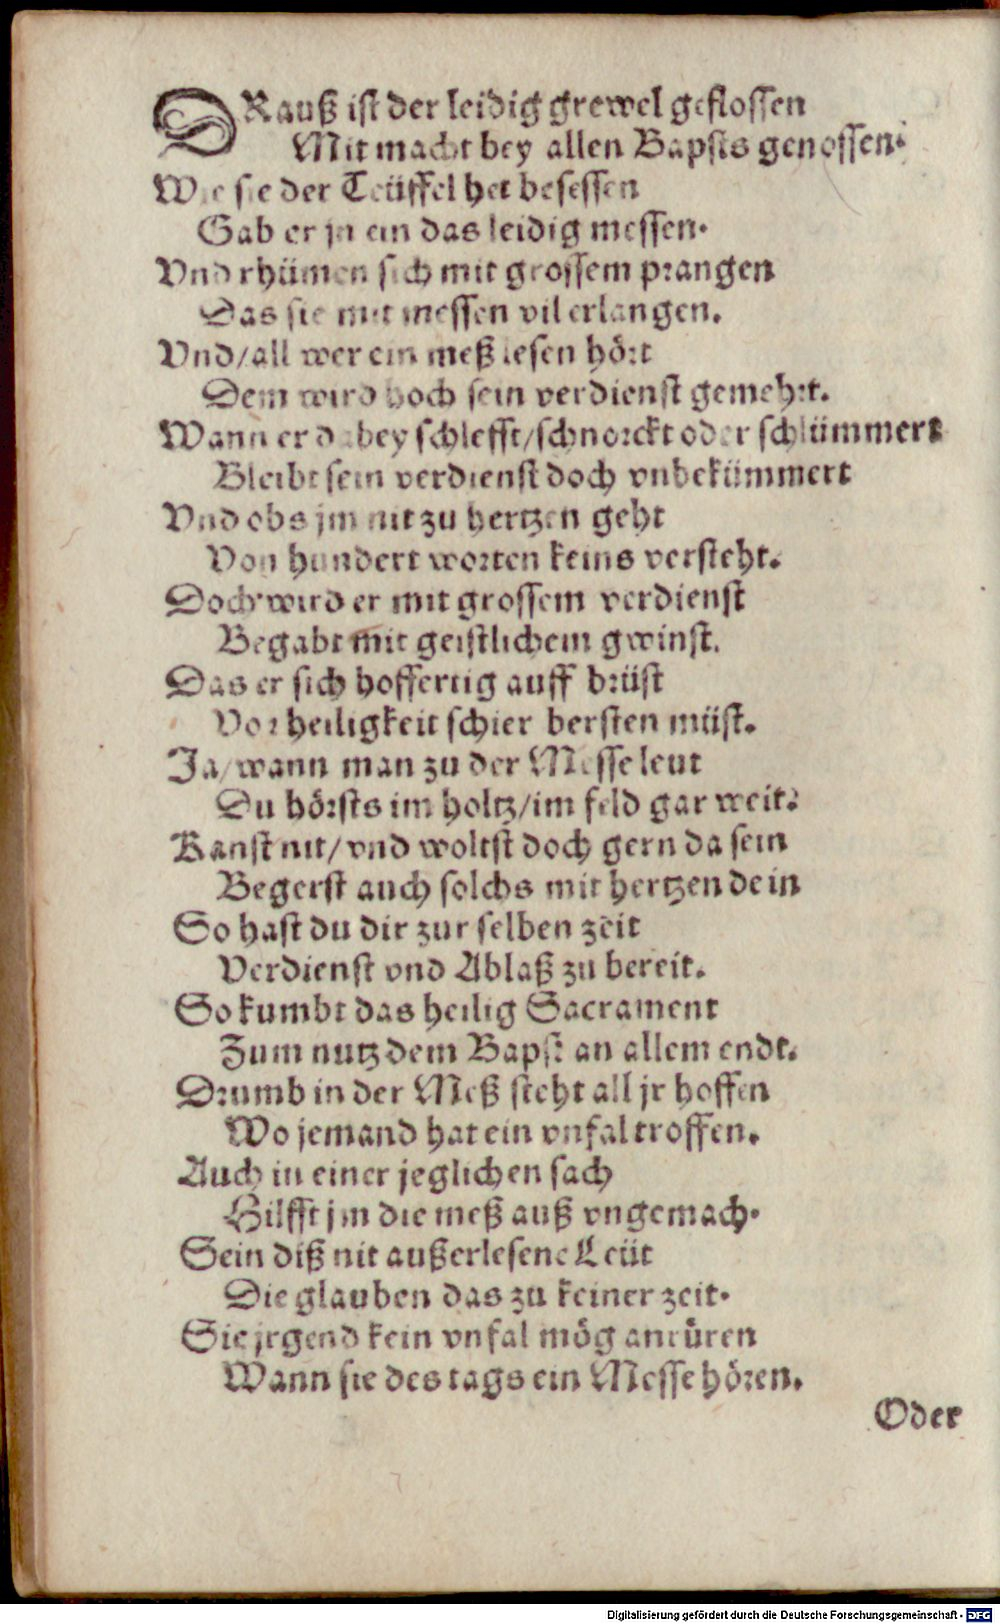 DRauß ist der leidig grewel geflossen
Mit macht bey allen Bapsts genossen.
Wie sie der Teüffel het besessen
Gab er jn ein das leidig messen.
Vnd rhümen sich mit grossem prangen
Das sie mit messen vil erlangen.
Vnd/all wer ein meß lesen hört
Dem wird hoch sein verdienst gemehrt.
Wann er dabey schlefft/schnorckt oder schlümmert
Bleibt sein verdienst doch vnbekümmert
Vnd obs jm nit zu hertzen geht
Von hundert worten keins versteht.
Doch wird er mit grossem verdienst
Begabt mit geistlichem gwinst.
Das er sich hoffertig auff brüst
Vor heiligkeit schier bersten müst.
Ja/wann man zu der Messe leut
Du hörsts im holtz/im feld gar weit.
Kanst nit/vnd woltst doch gern da sein
Begerst auch solchs mit hertzen dein
So hast du dir zur selben zeit
Verdienst vnd Ablaß zu bereit.
So kumbt das heilig Sacrament
Zum nutz dem Bapst an allem endt.
Drumb in der Meß steht all jr hoffen
Wo jemand hat ein vnfal troffen.
Auch in einer jeglichen sach
Hilfft jm die meß auß vngemach.
Sein diß nit außerlesene Leüt
Die glauben das zu keiner zeit.
Sie jrgend kein vnfal mög anrüren
Wann sie des tags ein Messe hören.
Oder
Digitalisierung gefördert durch die Deutsche Forschungsgemeinschaft - DFG